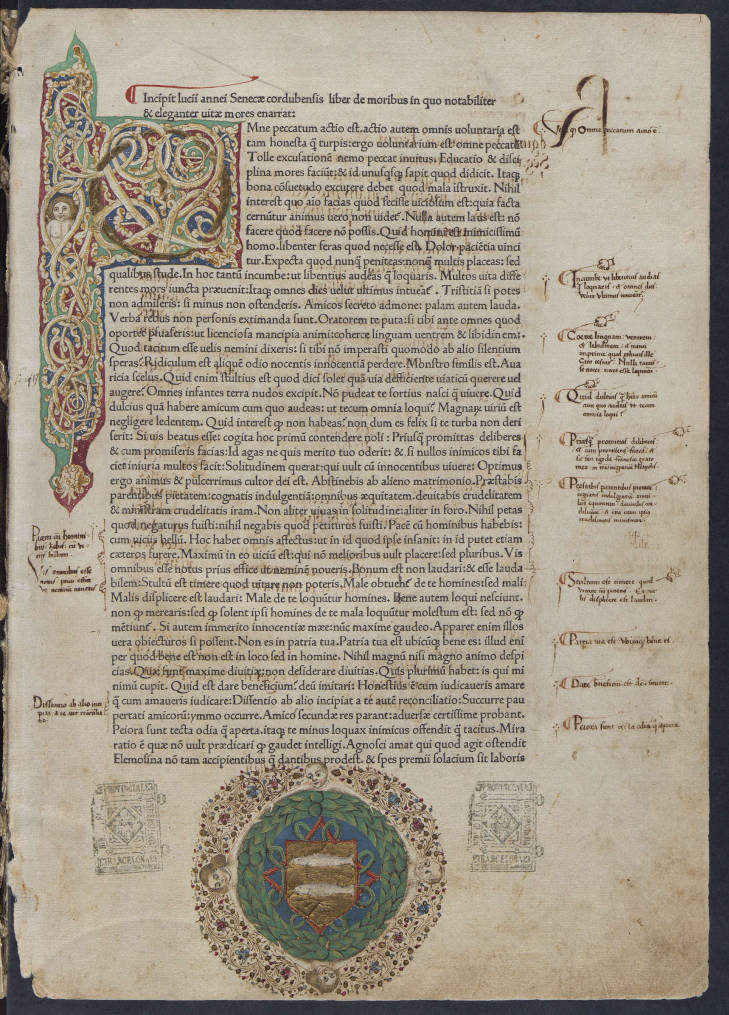 Incipit lucii annei Senecæ cordubensis liber de moribus in quo notabiliter
& eleganter uitæ mores enarrat:
Mne peccatum actio est. actio autem omnis uoluntaria est
tam honesta q̃ turpis: ergo uoluntarium est omne peccatū
Tolle excusationē nemo peccat inuitus. Educatio & disci
plina mores faciūt: & id unusqſq; sapit quod didicit. Itaq;
bona cōsuetudo excutere debet quod mala istruxit. Nihil
interest quo aīo facias quod fecisse uiciosum est: quia facta
cernūtur animus uero non uidet. Nulla autem laus est: nō
facere quod facere nō possis. Quid homini est inimicissimū
homo. libenter feras quod necesse est. Dolor paciētia uinci
tur. Expecta quod nunq̃ peniteas: nonq̃ multis placeas: sed
qualibus stude. In hoc tantū incumbe: ut libentius audeas q̃ loquaris. Multos uita diffe
rentes mors iuncta præuenit: Itaq; omnes dies uelut ultimus intueāt. Tristitiā si potes
non admiseris: si minus non ostenderis. Amicos secreto admone: palam autem lauda.
Verba rebus non personis extimanda sunt. Oratorem te puta: si tibi ante omnes quod
oportet psuaseris: ut licenciosa mancipia animi: coherce linguam uentrem & libidinem:
Quod tacitum esse uelis nemini dixeris: si tibi nō imperasti quomodo ab alio silentium
speras? Ridiculum est aliquē odio nocentis innocentiā perdere. Monstro similis est. Aua
ricia scelus. Quid enim stultius est quod dici solet quā uia deficiente uiaticū querere uel
augere? Omnes infantes terra nudos excipit. Nō pudeat te fortius nasci q̃ uiuere. Quid
dulcius quā habere amicum cum quo audeas: ut tecum omnia loqui? Magnaȝ uiriū est
negligere ledentem. Quid interest q̃ non habeas? non dum es felix si te turba non deri
serit: Si uis beatus esse: cogita hoc primū contendere noli: Priusq̃ promittas deliberes
& cum promiseris facias: Id agas ne quis merito tuo oderit: & si nullos inimicos tibi fa
ciet iniuria multos facit: Solitudinem querat: qui uult cū innocentibus uiuere: Optimus
ergo animus & pulcerrimus cultor dei est. Abstinebis ab alieno matrimonio. Præstabis
parentibus pietatem: cognatis indulgentiā: omnibus æquitatem. deuitabis crudelitatem
& ministram crudelitatis iram. Non aliter uiuas in solitudine: aliter in foro. Nihil petas
quod negaturus fuisti: nihil negabis quod petiturus fuisti. Pacē cū hominibus habebis:
cum uiciis bellū. Hoc habet omnis affectus: ut in id quod ipse insanit: in id putet etiam
cæteros furere. Maximū in eo uiciū est: qui nō melioribus uult placere: sed pluribus. Vis
omnibus esse notus prius effice ut neminē noueris. Bonum est non laudari: & esse lauda
bilem: Stultū est timere quod uitare non poteris. Male obtuent̄ de te homines: sed mali:
Malis displicere est laudari: Male de te loquūtur homines. Bene autem loqui nesciunt.
non q̃ mercaris: sed q̃ solent ipsi homines de te mala loquūtur molestum est: sed nō q̃
mētiunt̄. Si autem immerito innocentiæ mæe: nūc maxime gaudeo. Apparet enim illos
uera obiecturos si possent. Non es in patria tua. Patria tua est ubicūq; bene es: illud enī
per quod bene est non est in loco sed in homine. Nihil magnū nisi magno animo despi
cias. Quæ sunt maxime diuitiæ: non desiderare diuitias. Quis plurimū habet: is qui mi
nimū cupit. Quid est dare beneficium? deū imitari: Honestius ē cum iudicaueris amare
q̃ cum amaueris iudicare: Dissentio ab alio incipiat a te autē reconciliatio: Succurre pau
pertati amicorū: ymmo occurre. Amico secundæ res parant: aduersæ certissime probant.
Peiora sunt tecta odia q̃ aperta. itaq; te minus loquax inimicus offendit q̃ tacitus. Mira
ratio ē quæ nō uult prædicari q̃ gaudet intelligi. Agnosci amat qui quod agit ostendit
Elemosina nō tam accipientibus q̃ dantibus prodest. & spes premii solacium fit laboris
Omne peccatum actio ē
Incumbe ut libentius audias
q̃ loquaris
Coerce linguam: uentrem
& libidinem
Quid dulcius q̃ habere amicū
cum quo audeas ut tecum
omnia loqui?
Priusq̃ promittas deliberes
& cum promiseris facias
Præstabis parentibus pietatem
cognatis indulgentiā
Pacem cū homini
bus habebis: cū ui
ciis bellum.
Vis omnibus esse
notus prius effice
ut neminem noueris
Stultum est timere quod
uitare nō poteris
displicere est laudari.
Patria tua est ubicūq; bene es.
Dissentio ab alio inci
piat a te aut reconcilia
tio.
Dare beneficiū est deū imitari.
Peiora sunt tecta odia q̃ aperta.